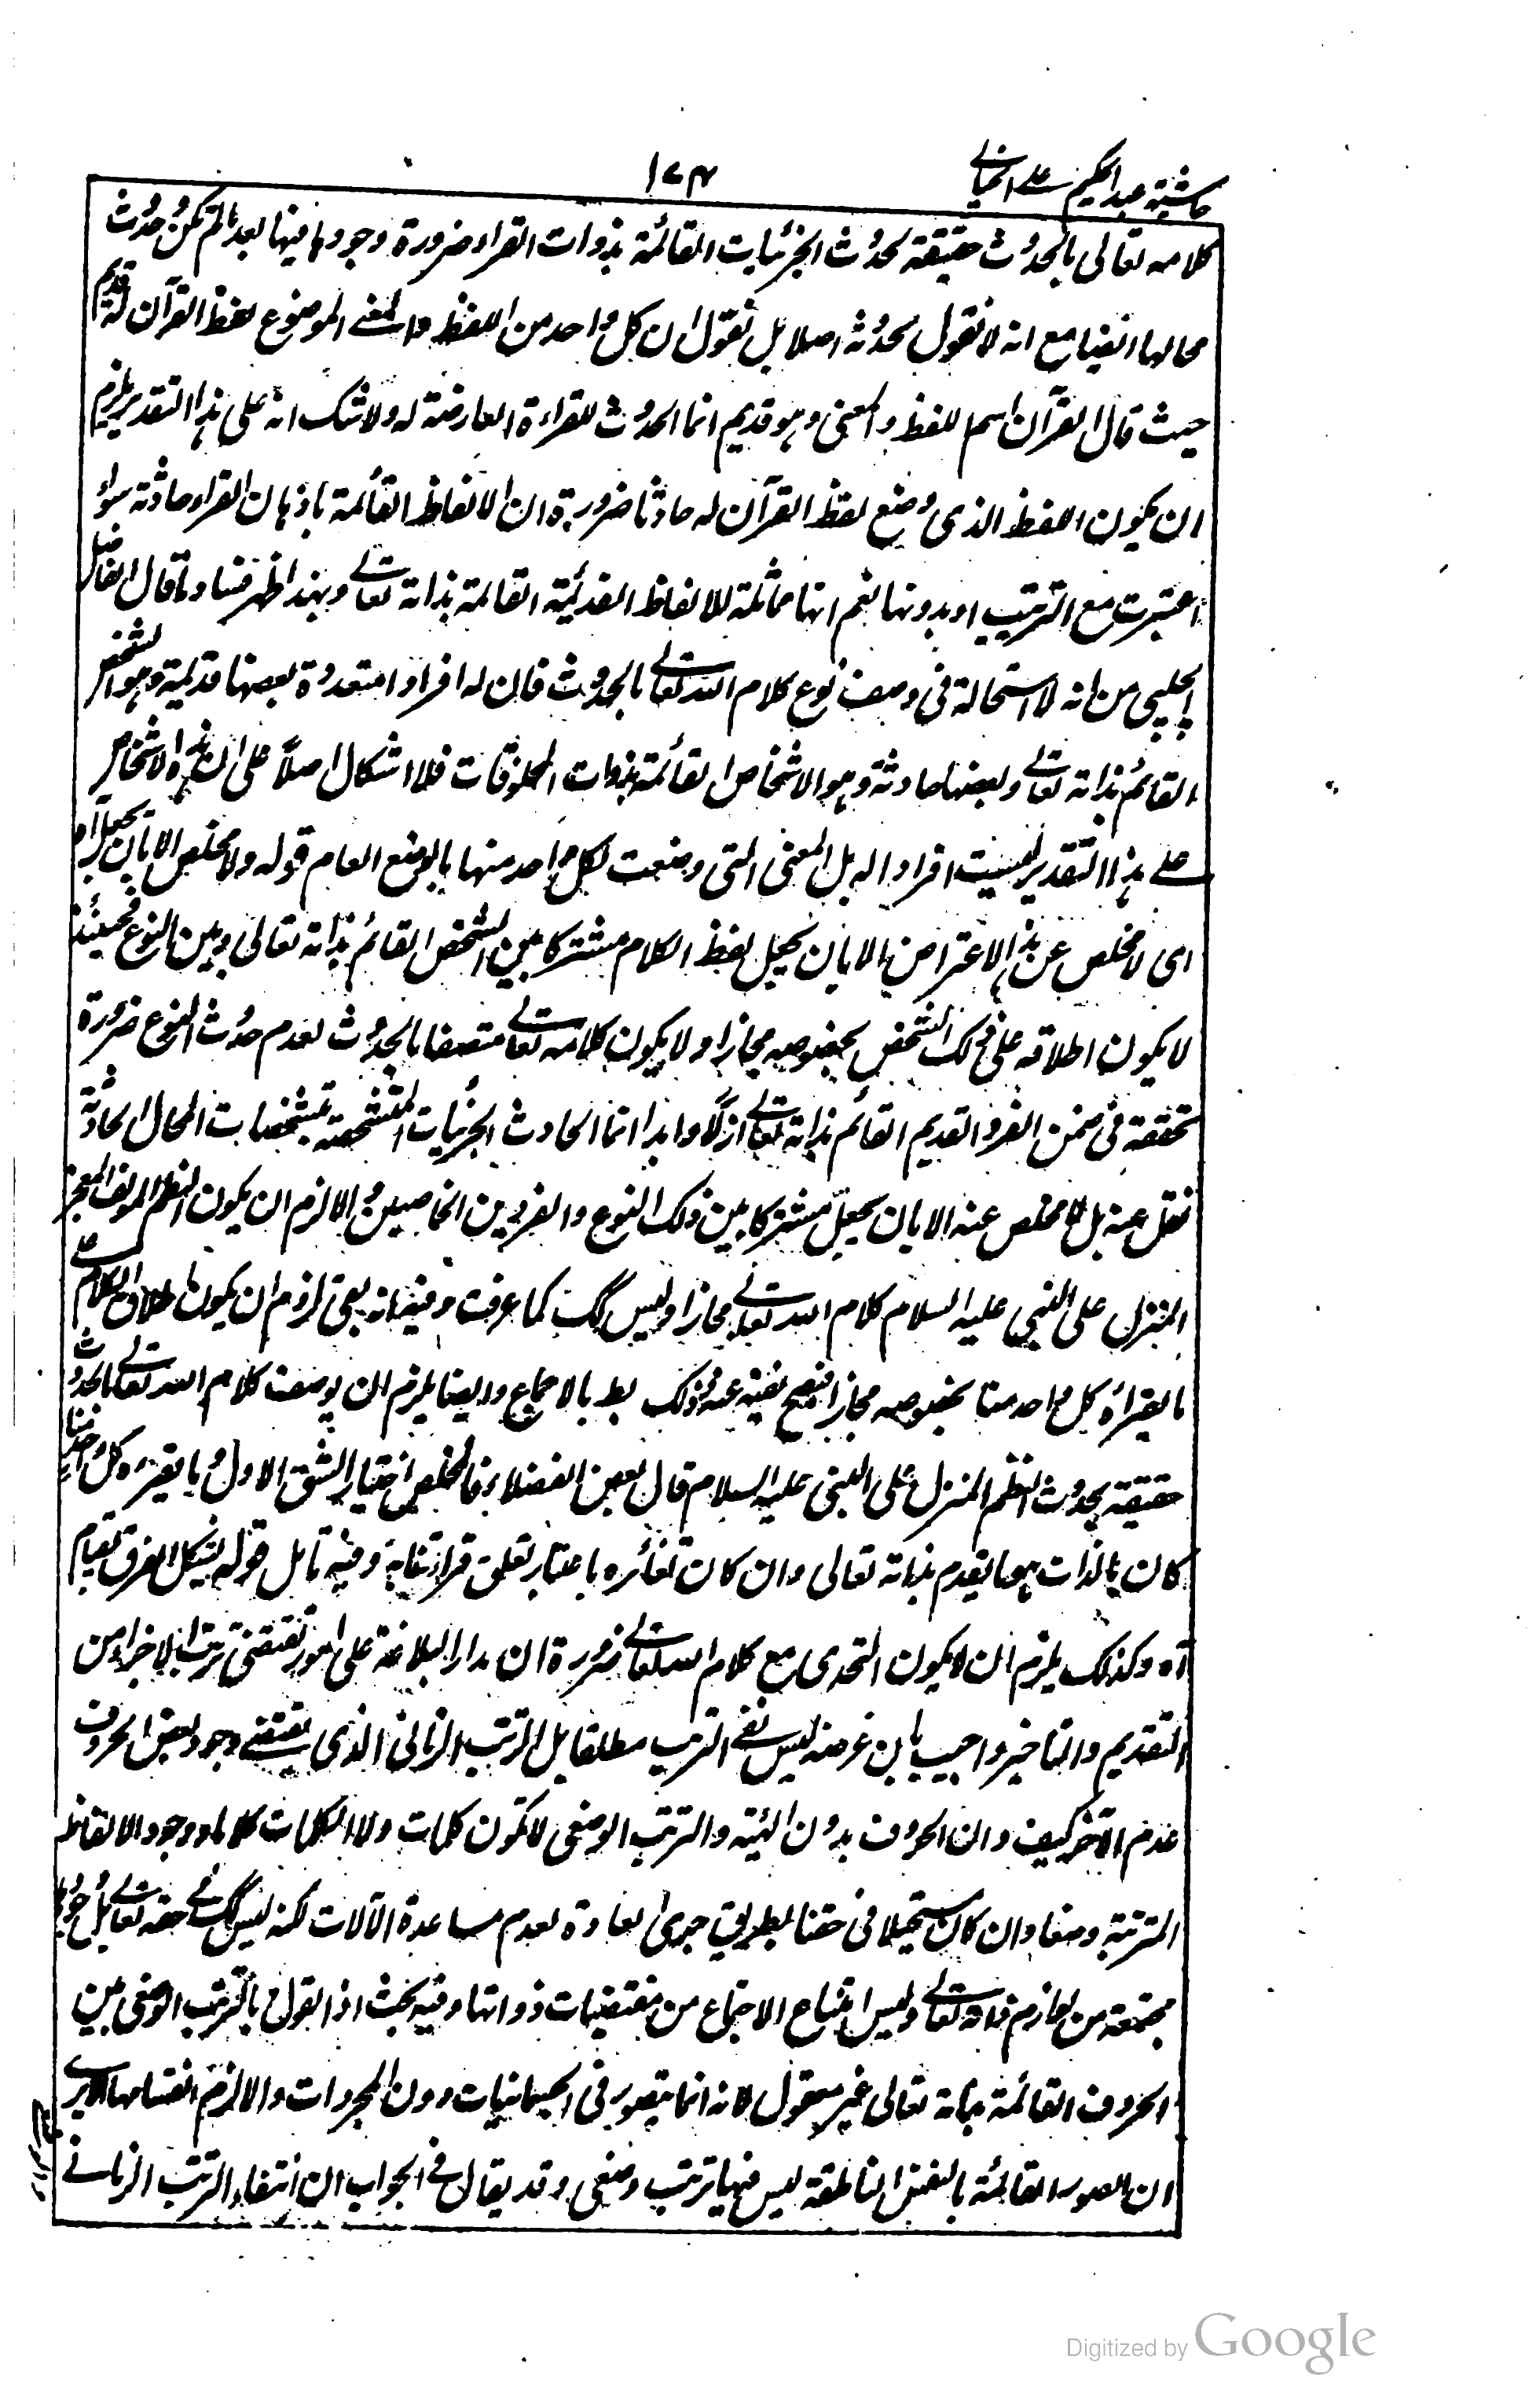 حاشية عبد الحكيم على الخيالي
١٧٤
كلامه تعالى بالحدوث حقيقة لحدوث الجزئيات القائمة بذوات القراء ضرورة وجودها فيها بعد ما لم تكن وحدوث
محالها ايضا مع انه لا نقول بحدوثه اصلا بل نقول ان كل واحد من اللفظ والمعنى الموضوع لفظ القرآن له قديم
حيث قال القرآن اسم للفظ والمعنى وهو قديم انما الحدوث للقراءة العارضة له ولا شك انه على هذا التقدير يلزم
ان يكون اللفظ الذى وضع لفظ القرآن له حادثا ضرورة ان الالفاظ القائمة باذهان القراء حادثة سواء
اعتبرت مع الترتيب او بدونها نعم انها مماثلة للالفاظ القديمة القائمة بذاته تعالى وبهذا ظهر فساد ما قال الفاضل
الجلبى من انه لا استحالة فى وصف نوع كلام الله تعالى بالحدوث فان له افرادا متعددة بعضها قديمة وهو الشخص
القائم بذاته تعالى وبعضها حادثة وهو الاشخاص القائمة بذوات المخلوقات فلا اشكال اصلا على ان هذه الاشخاص
على هذا التقدير ليست افراد اله بل المعنى التى وضعت لكل واحد منها بالوضع العام قوله ولا مخلص الا بان يجعل آه
اى لا مخلص عن هذا الاعتراض الا بان يجعل لفظ الكلام مشتركا بين الشخص القائم بذاته تعالى وبين النوع فحينئذ
لا يكون اطلاقه على ذلك الشخص بخصوصه مجازا ولا يكون كلامه تعالى متصفا بالحدوث لعدم حدوث النوع ضرورة
تحققه فى ضمن الفرد القديم القائم بذاته تعالى ازلا وابدا انما الحادث الجزئيات المتشخصة بتشخصات المحال الحادثة
نقل عنه بل لا مخلص عنه الا بان يجعل مشتركا بين ذلك النوع والفردين الخاصين والا لزم ان يكون النظم المؤلف المعجز
المنزل على النبى عليه السلام كلام الله تعالى مجازا وليس كك كما عرفت وفيه انه بقى لزوم ان يكون اطلاق الكلام على
ما يقرأه كل واحد منا بخصوصه مجازا فيصح نفيه عنه وذلك بط بالاجماع وايضا يلزم ان يوصف كلام الله تعالى بالحدوث
حقيقة بحدوث النظم المنزل على النبى عليه السلام قال بعض الفضلاء فالمخلص اختيار الشق الاول وما يقرءه كل واحد منا
كان بالذات هو ما يقوم بذاته تعالى وان كان تغائره باعتبار تعلق قراءتنا به وفيه تامل قوله يشكل الفرق بقيام
آه وكذلك يلزم ان لا يكون التحدى مع كلام الله تعالى ضرورة ان مدار البلاغة على امور تقتضى ترتيب الاجزاء من
التقديم والتاخير واجيب بان غرضه ليس نفى الترتب مطلقا بل الترتب الزمانى الذى يقتضى وجود بعض الحروف
عدم الآخر كيف وان الحروف بدون الهيئة والترتيب الوضعى لا تكون كلمات ولا الكلمات كلاما ووجود الالفاظ
المترتبة وضعا وان كان مستحيلا فى حقنا بطريق جرى العادة لعدم مساعدة الآلات لكنه ليس كك فى حقه تعالى بل وجودها
مجتمعة من لوازم ذاته تعالى وليس امتناع الاجتماع من مقتضيات ذواتها وفيه بحث اذ القول بالترتب الوضعى بين
الحروف القائمة بذاته تعالى غير معقول لانه انما يتصور فى الجسمانيات دون المجردات والا لزم انقسامها الا يرى
ان الصور القائمة بالنفس الناطقة ليس فيها ترتب وضعى وقد يقال فى الجواب ان انتفاء الترتب الزمانى
Digitized by Google